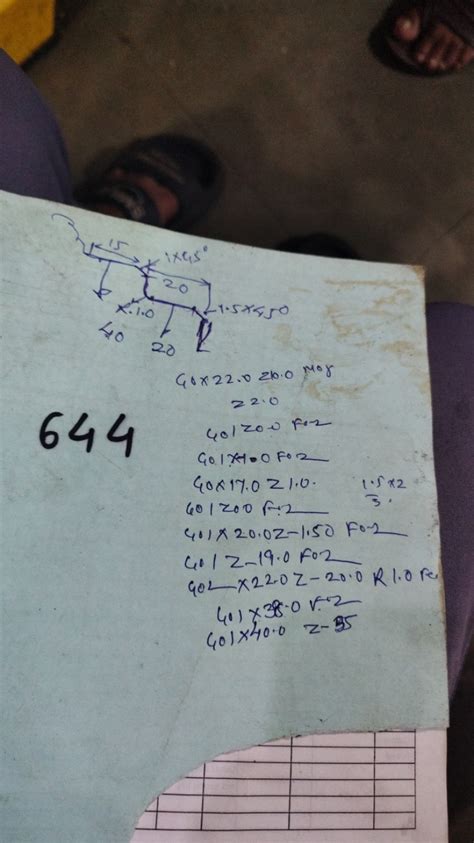 15 1x45°
20
x1.0 1.5x450
40 20
644
G0x22.0 z0.0 M08
z2.0
G01z0.0 F0.2
G01x1.0F0.2
G0x17.0 z1.0. 1.5x2
3.
G01z00 F.2
G01x20.0z-1.50 F0.2
G01z-19.0 F0.2
G02 x22.0z-20.0 R1.0
G01x38.0 F.2
G01x40.0 z-